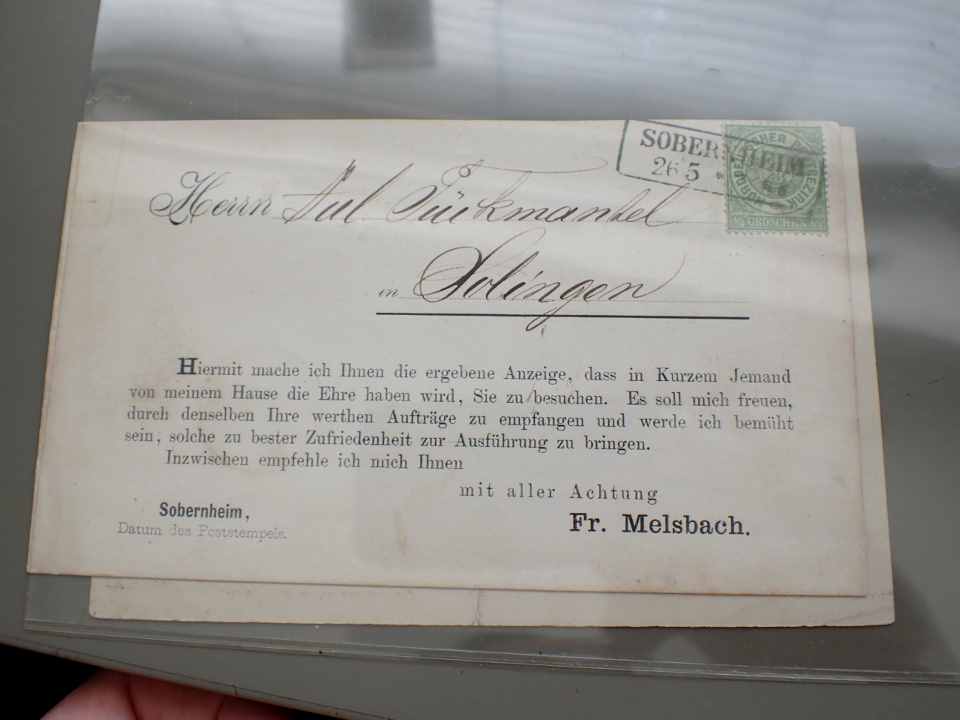 SOBERNHEIM
26 5
NORDDEUTSCHER POSTBEZIRK
GROSCHEN
Herrn Jul Tückmantel
in Solingen
Hiermit mache ich Ihnen die ergebene Anzeige, dass in Kurzem Jemand
von meinem Hause die Ehre haben wird, Sie zu besuchen. Es soll mich freuen,
durch denselben Ihre werthen Aufträge zu empfangen und werde ich bemüht
sein, solche zu bester Zufriedenheit zur Ausführung zu bringen.
Inzwischen empfehle ich mich Ihnen
mit aller Achtung
Fr. Melsbach.
Sobernheim,
Datum des Poststempels.